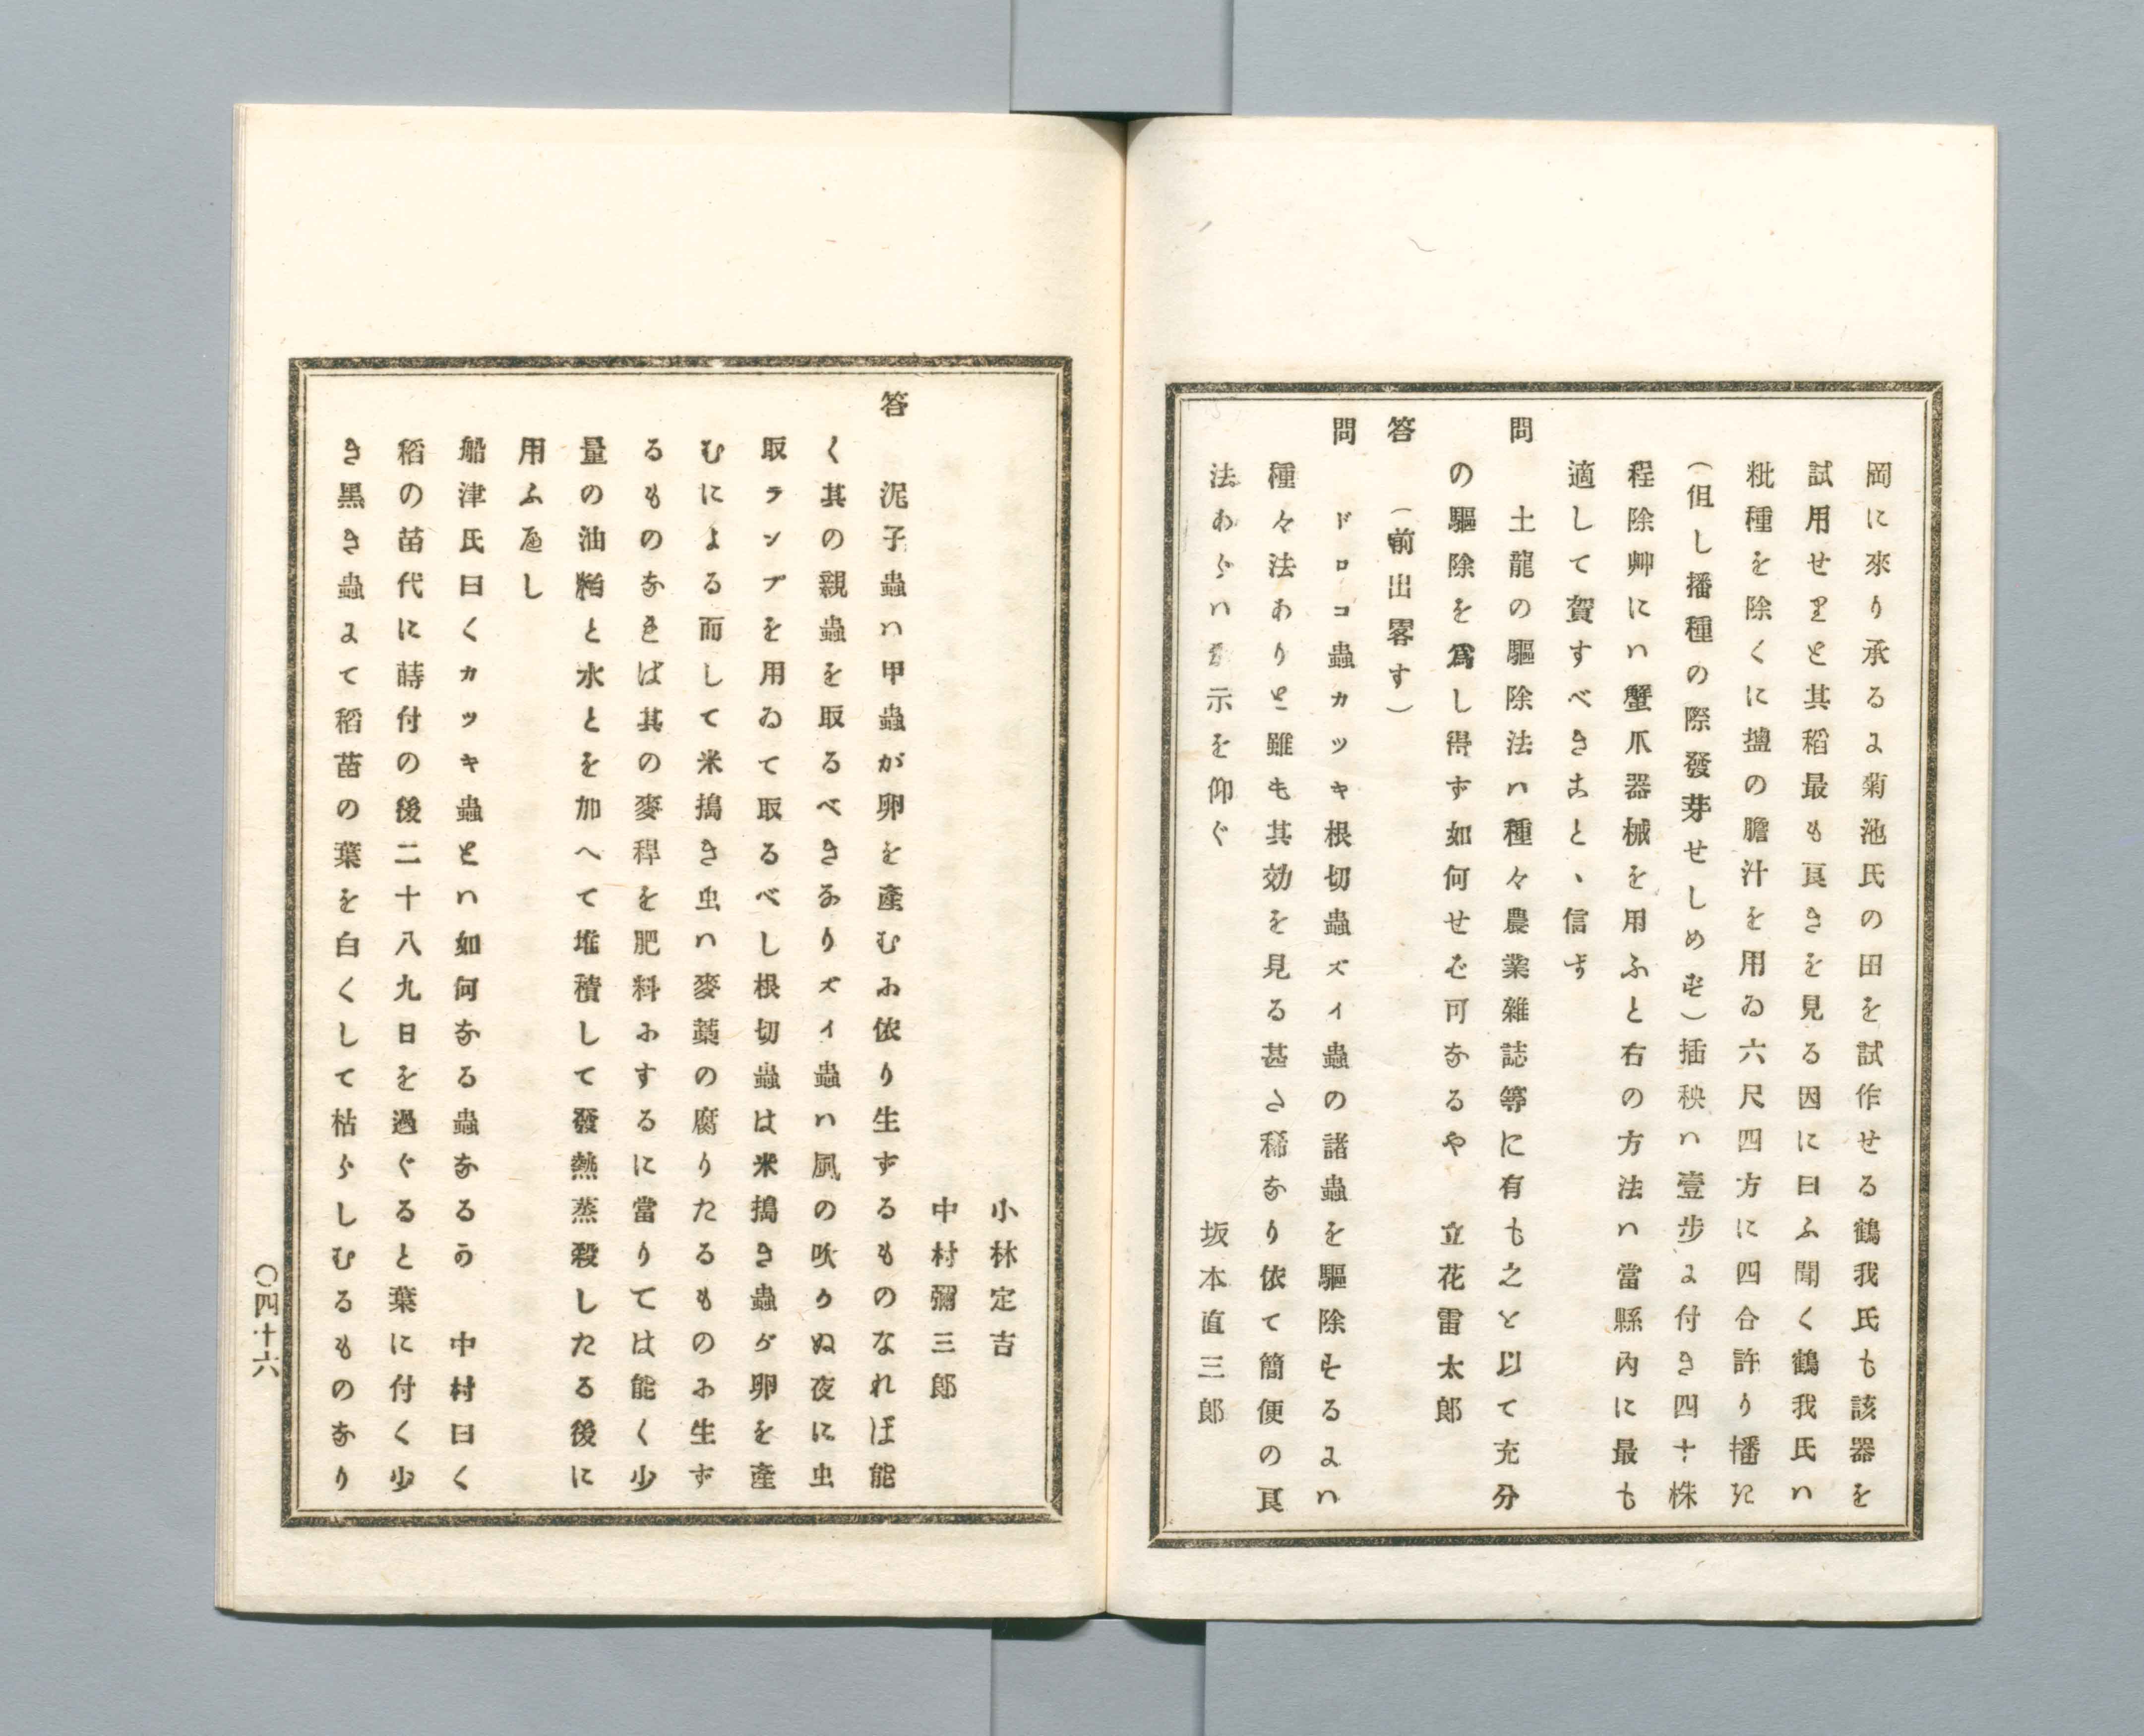 岡に來り承るに菊池氏の田を試作せる鶴我氏も該器を
試用せりと其稻最も良きを見る因に曰ふ聞く鶴我氏ハ
粃種を除くに塩の膽汁を用ゐ六尺四方に四合許り播き
(但し播種の際發芽せしめず)插秧ハ壹步に付き四十株
程除艸にハ蟹爪器械を用ふと右の方法ハ當縣內に最も
適して賀すべきこと、信ず
問　土龍の驅除法ハ種々農業雜誌等に有も之を以て充分
の驅除を爲し得ず如何せば可なるや　立花雷太郎
答　(前出畧す)
問　ドロコ蟲カツキ根切蟲ズイ蟲の諸蟲を驅除するにハ
種々法ありと雖も其効を見る甚さ稀なり依て簡便の良
法あらハ示を仰ぐ　坂本直三郎
小林定吉
中村彌三郎
答　泥子蟲ハ甲蟲が卵を產むに依り生ずるものなれば能
く其の親蟲を取るべきなりズイ蟲ハ風の吹かぬ夜に虫
取ランプを用ゐて取るべし根切蟲は米搗き蟲が卵を產
むによる而して米搗き虫ハ麥藁の腐りたるものに生ず
るものなれば其の麥稈を肥料にするに當りては能く少
量の油粕と水とを加へて堆積して發熱蒸殺したる後に
用ふべし
船津氏曰くカツキ蟲とハ如何なる蟲なるか　中村曰く
稻の苗代に蒔付の後二十八九日を過ぐると葉に付く少
き黑き蟲にて稻苗の葉を白くして枯らしむるものなり
〇四十六